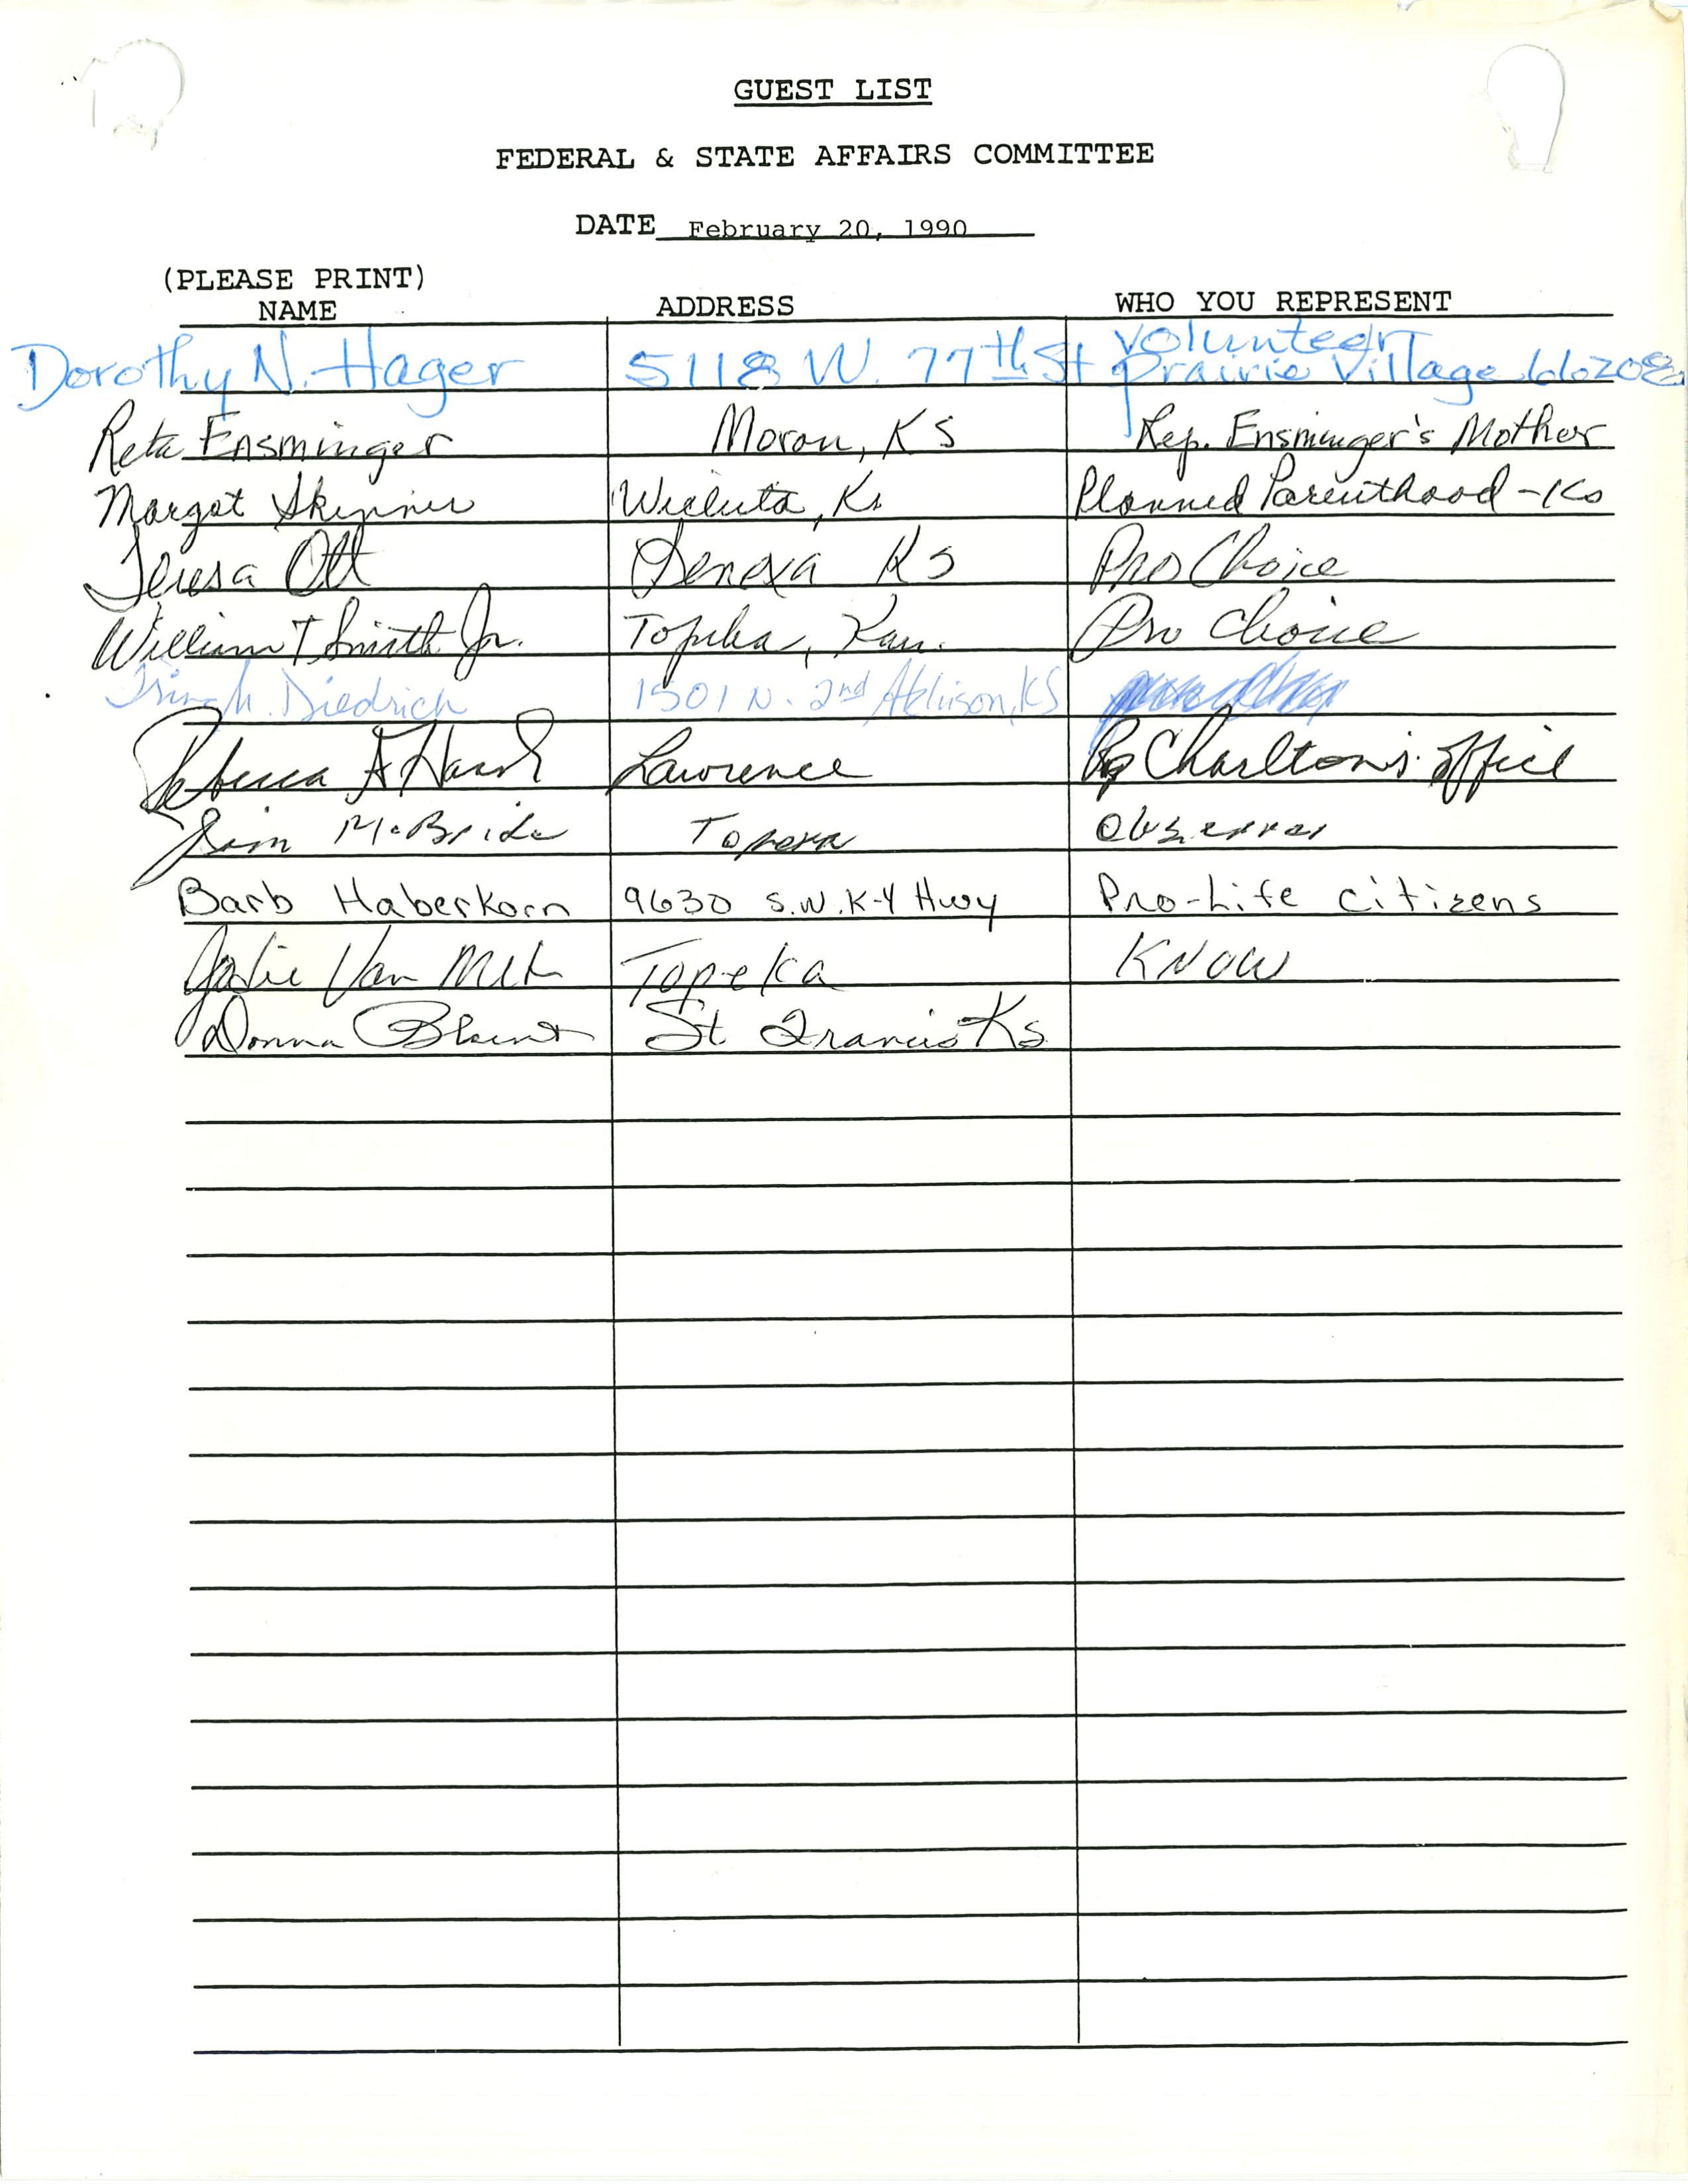 GUEST LIST
FEDERAL & STATE AFFAIRS COMMITTEE
DATE February 20, 1990
(PLEASE PRINT)
NAME ADDRESS WHO YOU REPRESENT
Volunteer
Dorothy N. Hager 5118 W. 77th St Prairie Village 66208
Reta Ensminger Moran, KS Rep. Ensminger's Mother
Margot Skinner Wichita, Ks Planned Parenthood - Ks
Teresa Ott Lenexa KS Pro Choice
William T Smith Jr. Topeka, Kan. Pro Choice
Diedrich 1501 N. 2nd Atchison, KS
Rebecca Lawrence Rep Charlton's office
Jim McBride Topeka Observer
Barb Haberkorn 9630 S.W. K-4 Hwy Pro-Life citizens
Van Topeka KNOW
Donna Blount St Francis Ks